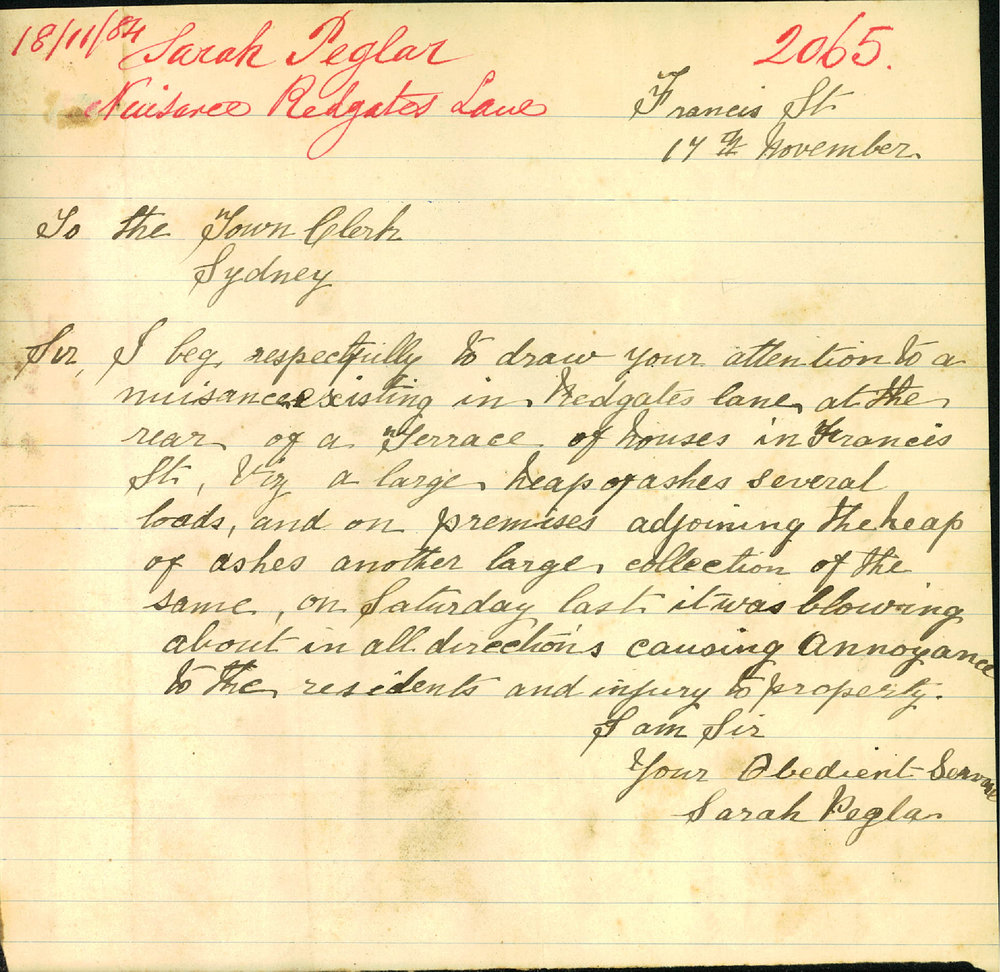 18/11/84 Sarah Peglar 2065.
Nuisance Redgates Lane
Francis St
17th November
To the Town Clerk
Sydney
Sir, I beg respectfully to draw your attention to a
nuisance existing in Redgates lane at the
rear of a Terrace of houses in Francis
St, Viz a large heap of ashes several
loads, and on premises adjoining the heap
of ashes another large collection of the
same, on Saturday last it was blowing
about in all directions causing Annoyance
to the residents and injury to property.
I am Sir
Your Obedient Servant
Sarah Peglar